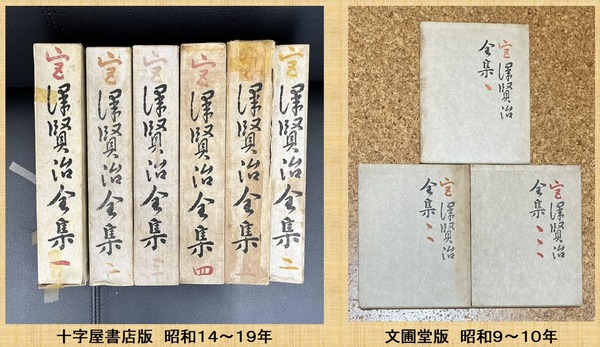 宮澤賢治全集 一
宮澤賢治全集
宮澤賢治全集
宮澤賢治全集 四
宮澤賢治全集
宮澤賢治全集 二
十字屋書店版 昭和14～19年
宮澤賢治
全集、
宮澤賢治
全集、、
宮澤賢治
全集、、、
文圃堂版 昭和9～10年